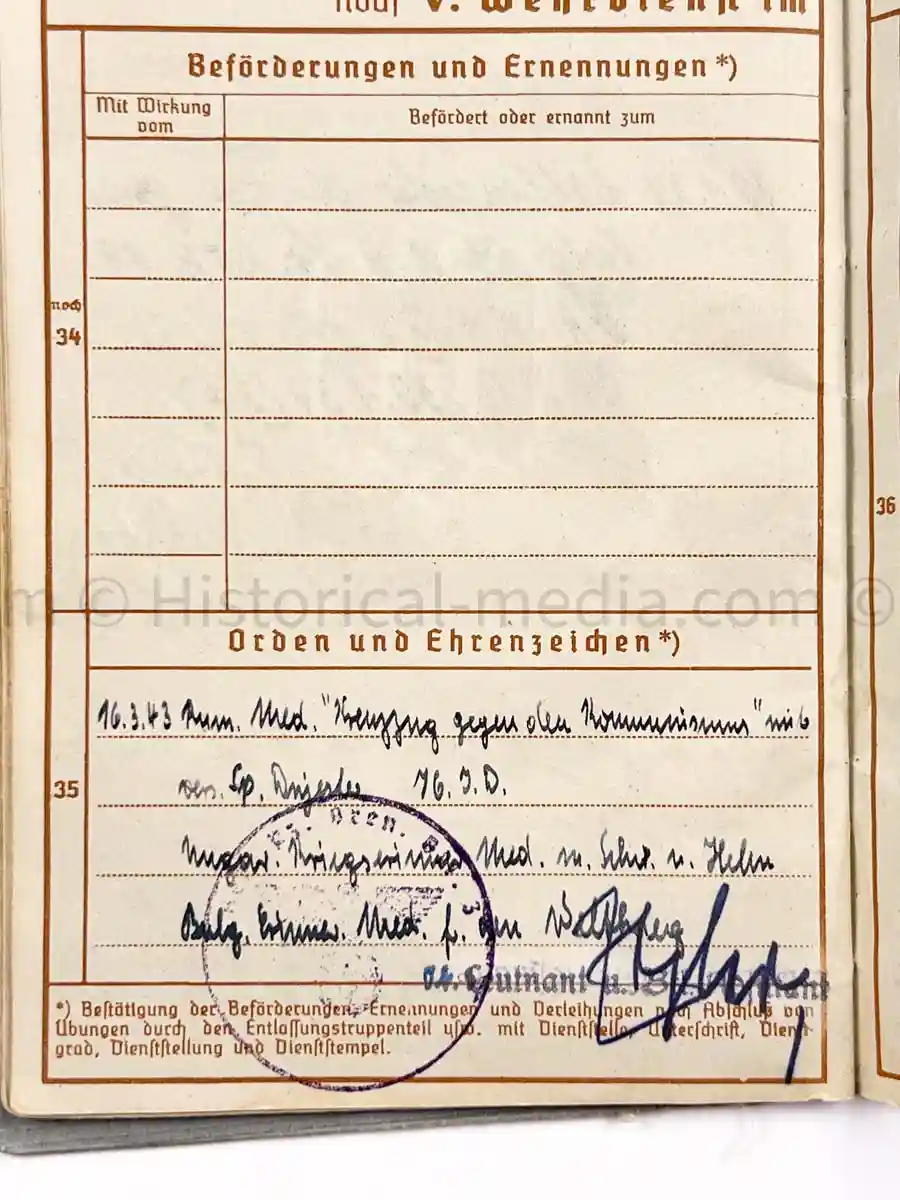 v. Wehrdienst im
Beförderungen und Ernennungen *)
Mit Wirkung
vom
Befördert oder ernannt zum
noch
34
36
m © Historical-media.com ©
Orden und Ehrenzeichen *)
16.3.43 Rum. Med. "Kreuzzug gegen den Kommunismus" mit
35
Sp. Dnjester 76. I.D.
Ungar. Kriegserinner Med. m. Schw. u. Helm
Bulg. Erinner. Med. f. den Weltkrieg
Leutnant u.
*) Bestätigung der Beförderungen, Ernennungen und Verleihungen nach Abschluß von
Übungen durch den Entlassungstruppenteil usw. mit Dienststelle, Unterschrift, Dienst-
grad, Dienststellung und Dienststempel.